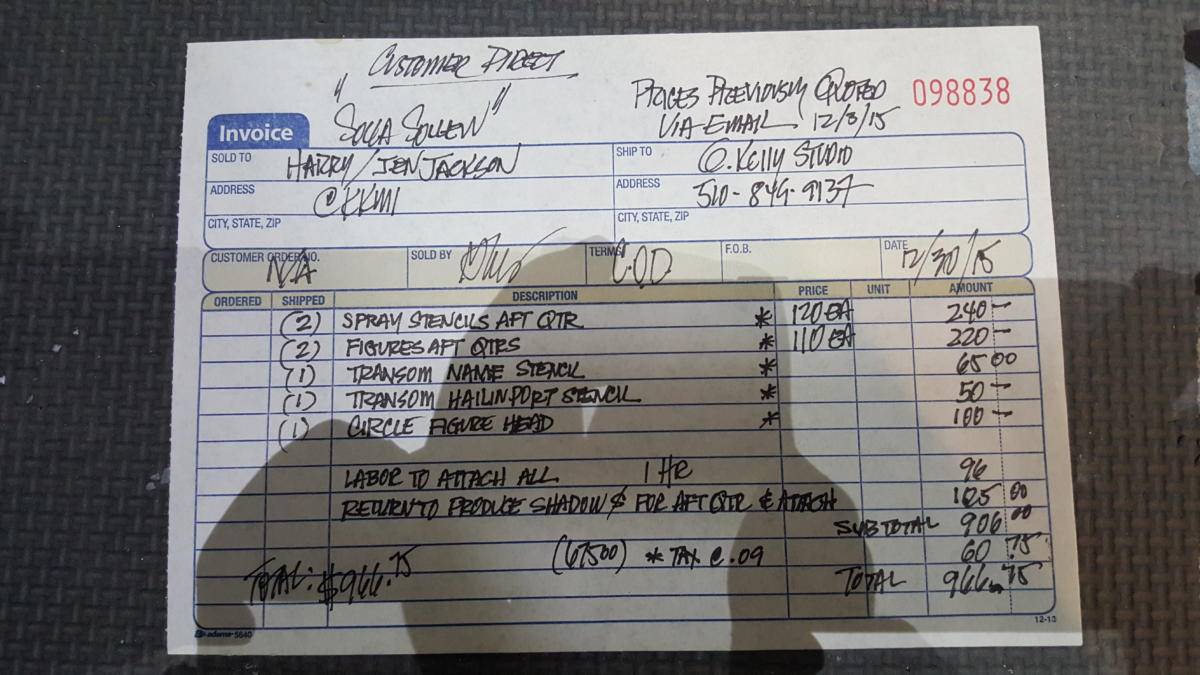 Customer Direct
" SOLLA SOLLEW "
PRICES PREVIOUSLY QUOTED
VIA EMAIL 12/3/15
098838
Invoice
SOLD TO HARRY/JEN JACKSON
SHIP TO O.Kelly STUDIO
ADDRESS @KKMI
ADDRESS 510-849-9137
CITY, STATE, ZIP
CITY, STATE, ZIP
CUSTOMER ORDER NO. N/A SOLD BY TERMS C.O.D F.O.B. DATE 12/30/15
ORDERED SHIPPED DESCRIPTION PRICE UNIT AMOUNT
(2) SPRAY STENCILS AFT QTR * 120 EA 240 —
(2) FIGURES AFT QTRS * 110 EA 220 —
(1) TRANSOM NAME STENCIL * 65 00
(1) TRANSOM HAILINPORT STENCIL * 50 —
(1) CIRCLE FIGURE HEAD * 100 —
LABOR TO ATTACH ALL 1 HR 96
RETURN TO PRODUCE SHADOW $ FOR AFT QTR & ATTACH 00
SUBTOTAL 906 00
(67500) * TAX @ .09 60 .75
TOTAL: $966.75 TOTAL 966. 75
adams 5640
12-13